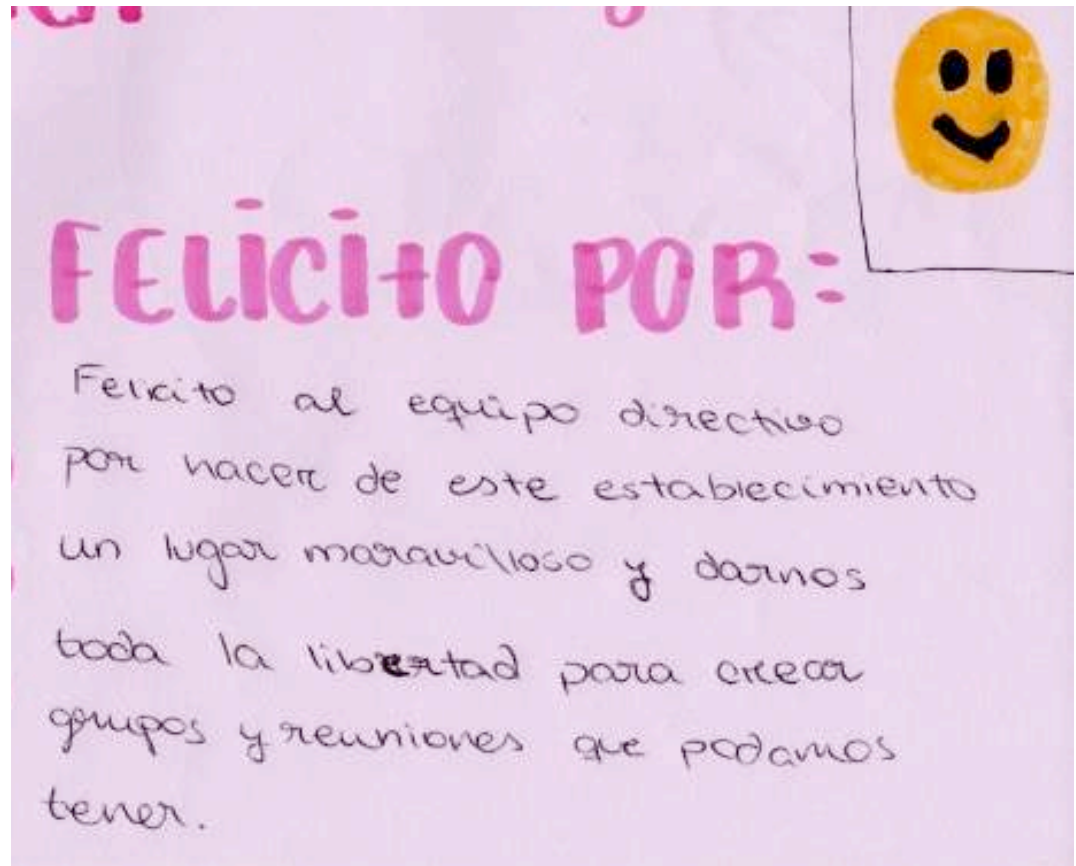 FELICITO POR:
Felicito al equipo directivo
por hacer de este establecimiento
un lugar maravilloso y darnos
toda la libertad para crear
grupos y reuniones que podamos
tener.